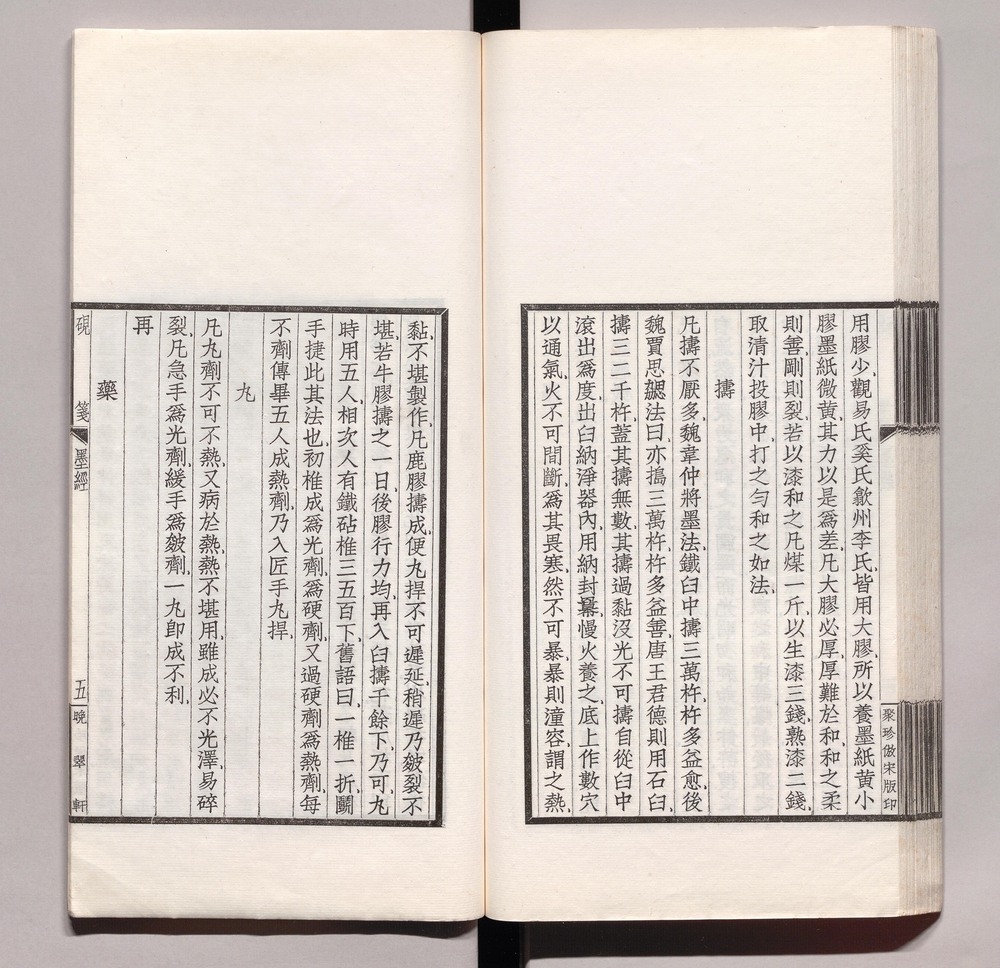 用膠少、觀易氏奚氏歙州李氏、皆用大膠、所以養墨紙黃小
膠墨紙微黃、其力以是爲差、凡大膠必厚、厚難於和、和之柔
則善、剛則裂、若以漆和之、凡煤一斤、以生漆三錢、熟漆二錢、
取清汁投膠中、打之勻和之如法、
擣
凡擣不厭多、魏韋仲將墨法、鐵臼中擣三萬杵、杵多益愈、後
魏賈思勰法曰、亦搗三萬杵、杵多益善、唐王君德則用石臼、
擣三二千杵、蓋其擣無數、其擣過黏沒光不可擣、自從臼中
滾出爲度、出臼納淨器內、用納封羃、慢火養之、底上作數穴
以通氣、火不可間斷、爲其畏寒、然不可暴、暴則潼容、謂之熱
黏、不堪製作、凡鹿膠擣成、便丸捍、不可遲延、稍遲乃皴裂不
堪、若牛膠擣之一日後、膠行力均、再入臼擣千餘下乃可、丸
時用五人、相次人有鐵砧椎三五百下、舊語曰、一椎一折、鬭
手捷、此其法也、初椎成爲光劑、爲硬劑、又過硬劑爲熱劑、每
不劑傳畢五人成熱劑、乃入匠手丸捍、
丸
凡丸劑不可不熱、又病於熱、熱不堪用、雖成必不光澤、易碎
裂、凡急手爲光劑、緩手爲皴劑、一丸卽成不利、
再
藥
硯 箋
墨經
五
晚翠軒
聚珍倣宋版印